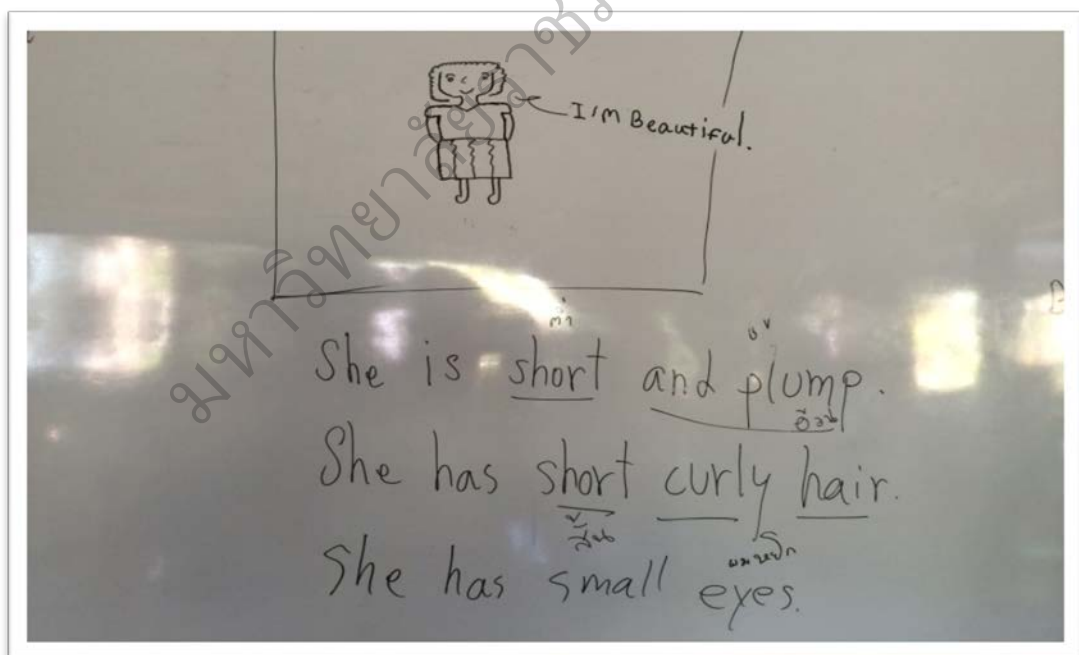 I'm Beautiful.
She is short and plump.
อ้วน
She has short curly hair.
สั้น ผมหยิก
She has small eyes.